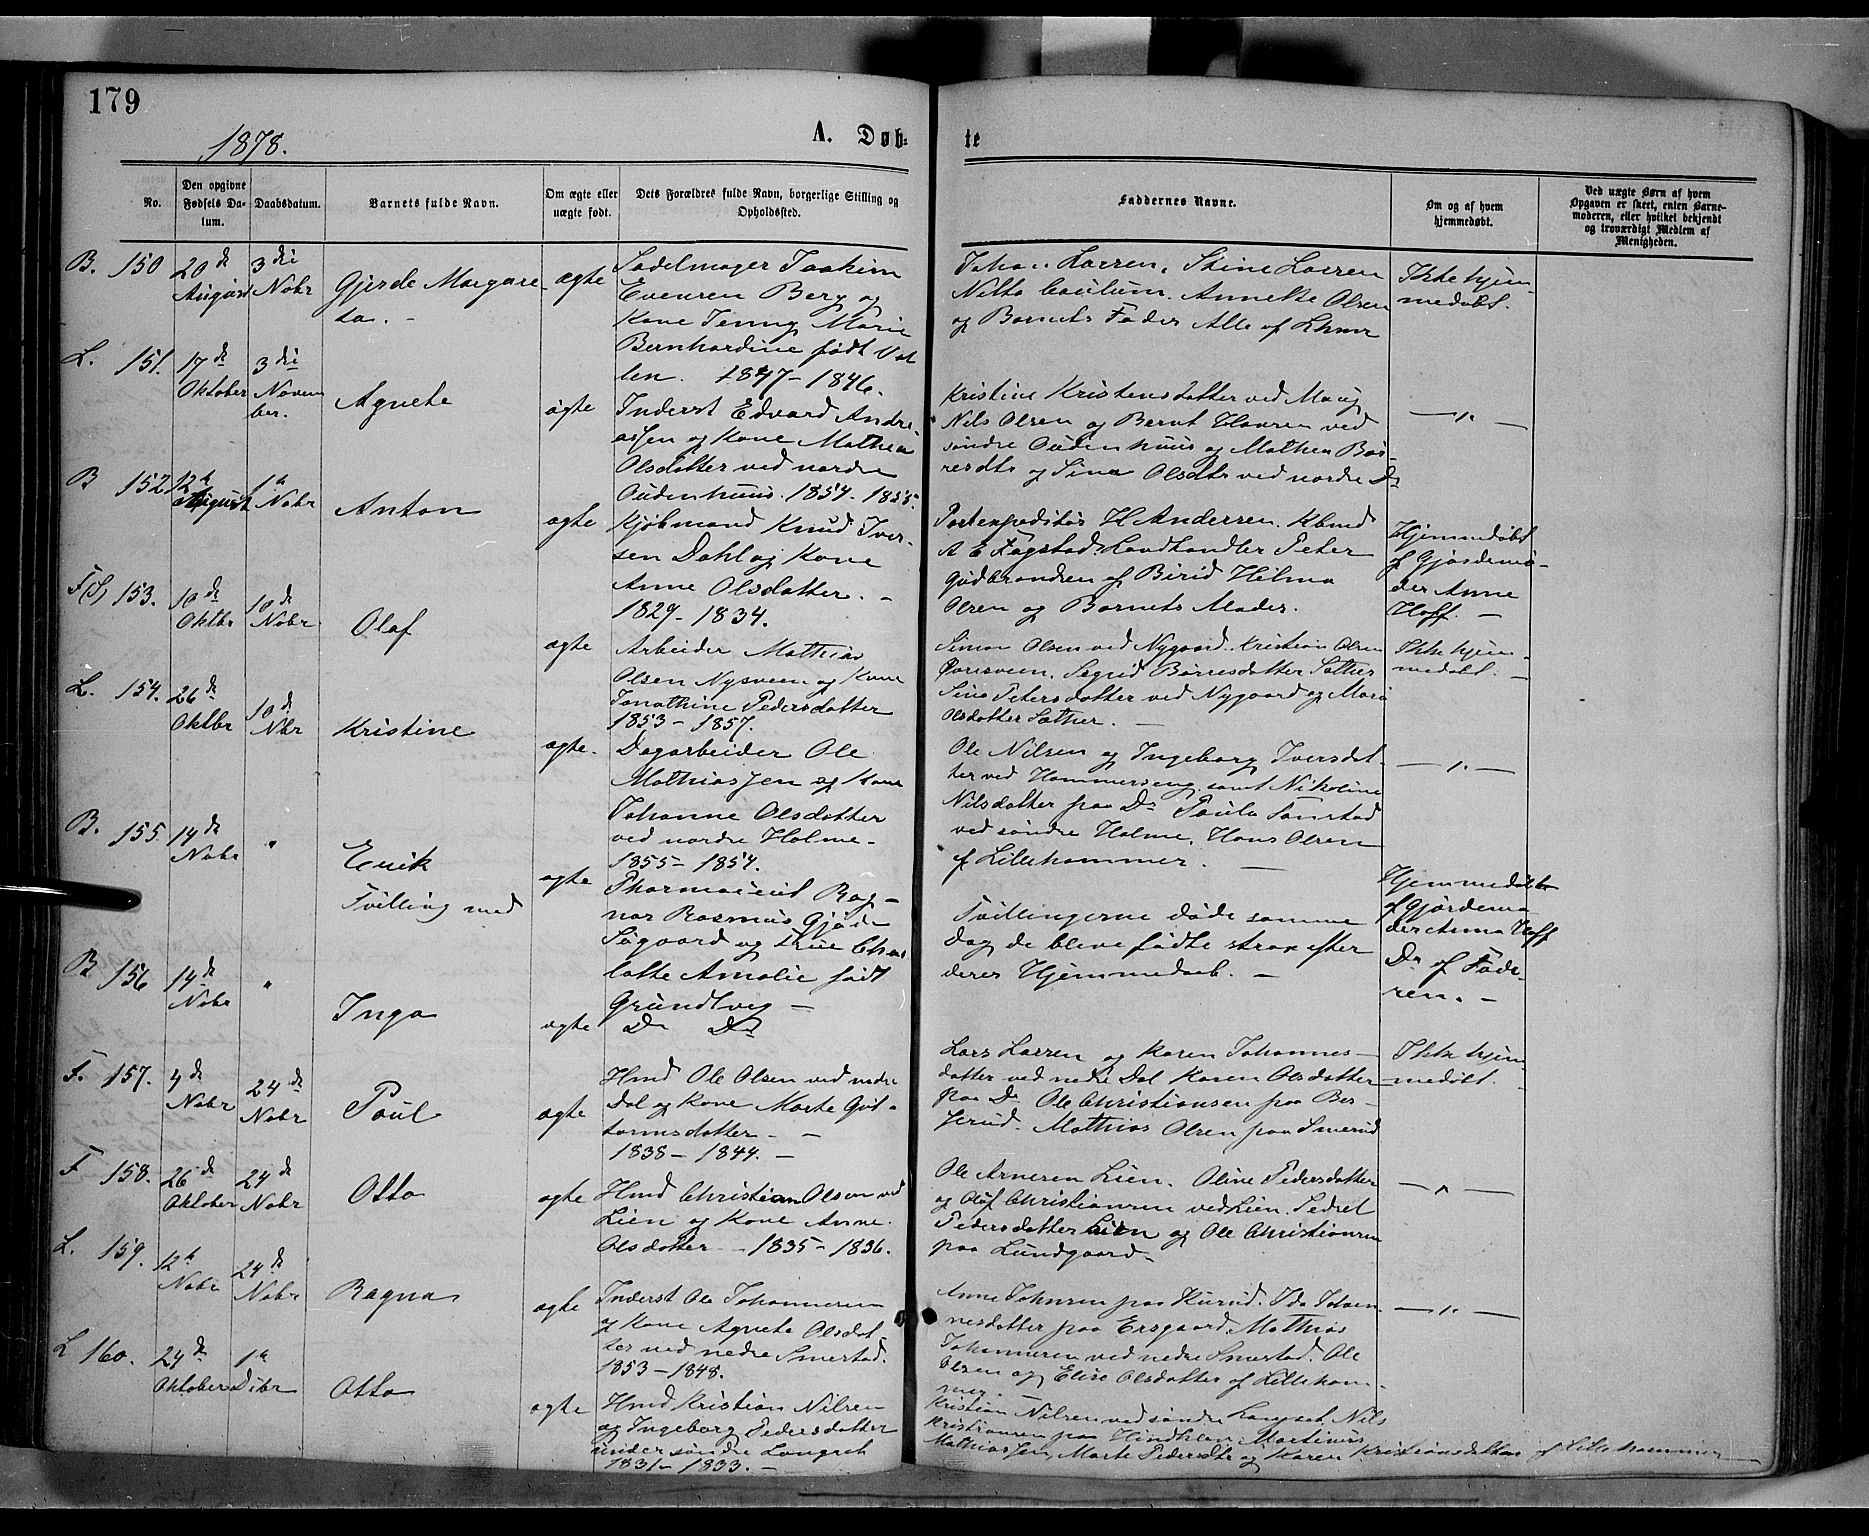 179
1878.
A. Døb-
te
No.
Den opgivne Fødsels Da-tum.
Daabsdatum.
Barnets fulde Navn.
Om ægte eller uægte født.
Dets Forældres fulde Navn, borgerlige Stilling og Opholdssted.
Faddernes Navne.
Om og af hvem hjemmedøbt.
Ved uægte Børn af hvem Opgaven er skeet, enten Barne-moderen, eller hvilket bekjendt og troværdigt Medlem af Menigheden.
B. 150 20de August 3die Nobr Gjerde Margare-ta. ægte
Sadelmager Joakim
Evensen Berg og
Kone Jenny Marie
Bernhardine født
1847 - 1846.
Larsen, Stine Larsen
Annette Olsen
og Barnets Fader Alle af Lhmr
Ikke hjem-
medøbt.
L. 151. 17de Oktober 3die Novem-ber. Agnete ægte
Inderst Edvard Andre-
asSen og Kone Mathea
Olsdatter ved nordre
Oudenhuus. 1854. 1855.
Kristine Kristensdatter ved
Nils Olsen og Bernt Hansen ved
søndre Oudenhuus og Mathea
og Sina Olsdtr ved nordre Do
— " —
B 152 12te August 1te Nobr Anton ægte
Kjøbmand Knud Iver-
sen Dahl og Kone
Anne Olsdatter. -
1829 - 1834.
Postexpeditør H Andersen. Kbmd
A E Fogstad. Landhandler Peter
Gudbrandsen af Birid Hilma
Olsen og Barnets Moder.
Hjemmedøbt
af Gjordemo-
der Anne
Hoff. -
F(S) 153. 10de Oktbr 10de Nobr Olaf ægte
Arbeider Mathias
Olsen Nysveen og Kone
Jonathine Pedersdatter
1853 - 1857.
Simon Olsen ved Nygaard. Kristian Olsen
Sigrid Børresdatter Sæther
Sina Petersdatter ved Nygaard og Mari
Olsdatter Sæther. -
Ikke hjem-
medøbt. -
L. 154. 26de Oktbr 10de Nbr Kristine ægte.
Dagarbeider Ole
MathiasSen og Kone
Johanne Olsdatter
ved nordre Holme-
1855 - 1854.
Ole Nilsen og Ingeborg Iversdat-
ter ved Hammerseng, samt Nikoline
Nilsdatter paa Do Paula
ved søndre Holme, Hans Olsen
af Lillehammer. -
— " —
B. 155. 14de Nobr " Erik
Tvilling med ægte
Pharmaceut Rag-
nar Rasmus Gjøde
Søgaard og Frue Char-
lotte Amalie født
Grundtvig -
Tvillingerne døde samme
Dag de bleve fødte strax efter
deres Hjemmedaab. -
Hjemmedøbte
af Gjordemo-
der Anna Hoff
B 156 14de Nobr " Inga ægte
Do Do
Do af Fade-
ren. -
F. 157. 4de Nobr 24de Nobr Paul ægte
Hmd Ole Olsen ved nedre
Dal og Kone Marte Gut-
tormsdatter -
1838 - 1844. -
Lars Larsen og Karen Johannes-
datter ved nedre Dal Karen Olsdatter
paa Do Ole Christiansen paa Ber-
Serud. Mathias Olsen paa Smerud
Ikke hjem
medøbt.
F 158. 26de Oktober 24de Nobr Otto ægte
Hmd Christian Olsen ved
Lien og Kone Anne
Olsdatter - 1835 - 1836.
Ole Arnesen Lien. Oline Pedersdatter
og Oluf Christiansen ved Lien. Pedsel
Pedersdatter Lien og Ole Christiansen
paa Lundgaard-
— " —
L. 159. 12te Nobr 24de Nobr Ragna ægte
Inderst Ole Johannesen
og Kone Agnete Olsdat-
ter ved nedre Smestad.
1853 - 1848.
Anne Johnsen paa Rurud. Ida Johan-
nesdatter paa Ersgaard. Mathias
Johannesen ved nedre Smestad. Ole
Olsen og Elise Olsdatter af Lilleham-
mer. -
— " —
L 160. 24de Oktober 1te Dcbr Otto ægte
Hmd Kristian Nilsen
og Ingeborg Pedersdatter
under søndre Langset
1831 - 1833. -
Kristian Nilsen ved søndre Langset. Nils
Kristiansen paa Martinus
MathiasSen, Marte Pedersdtr og Karen Kristiansdatter af Lillehammer -